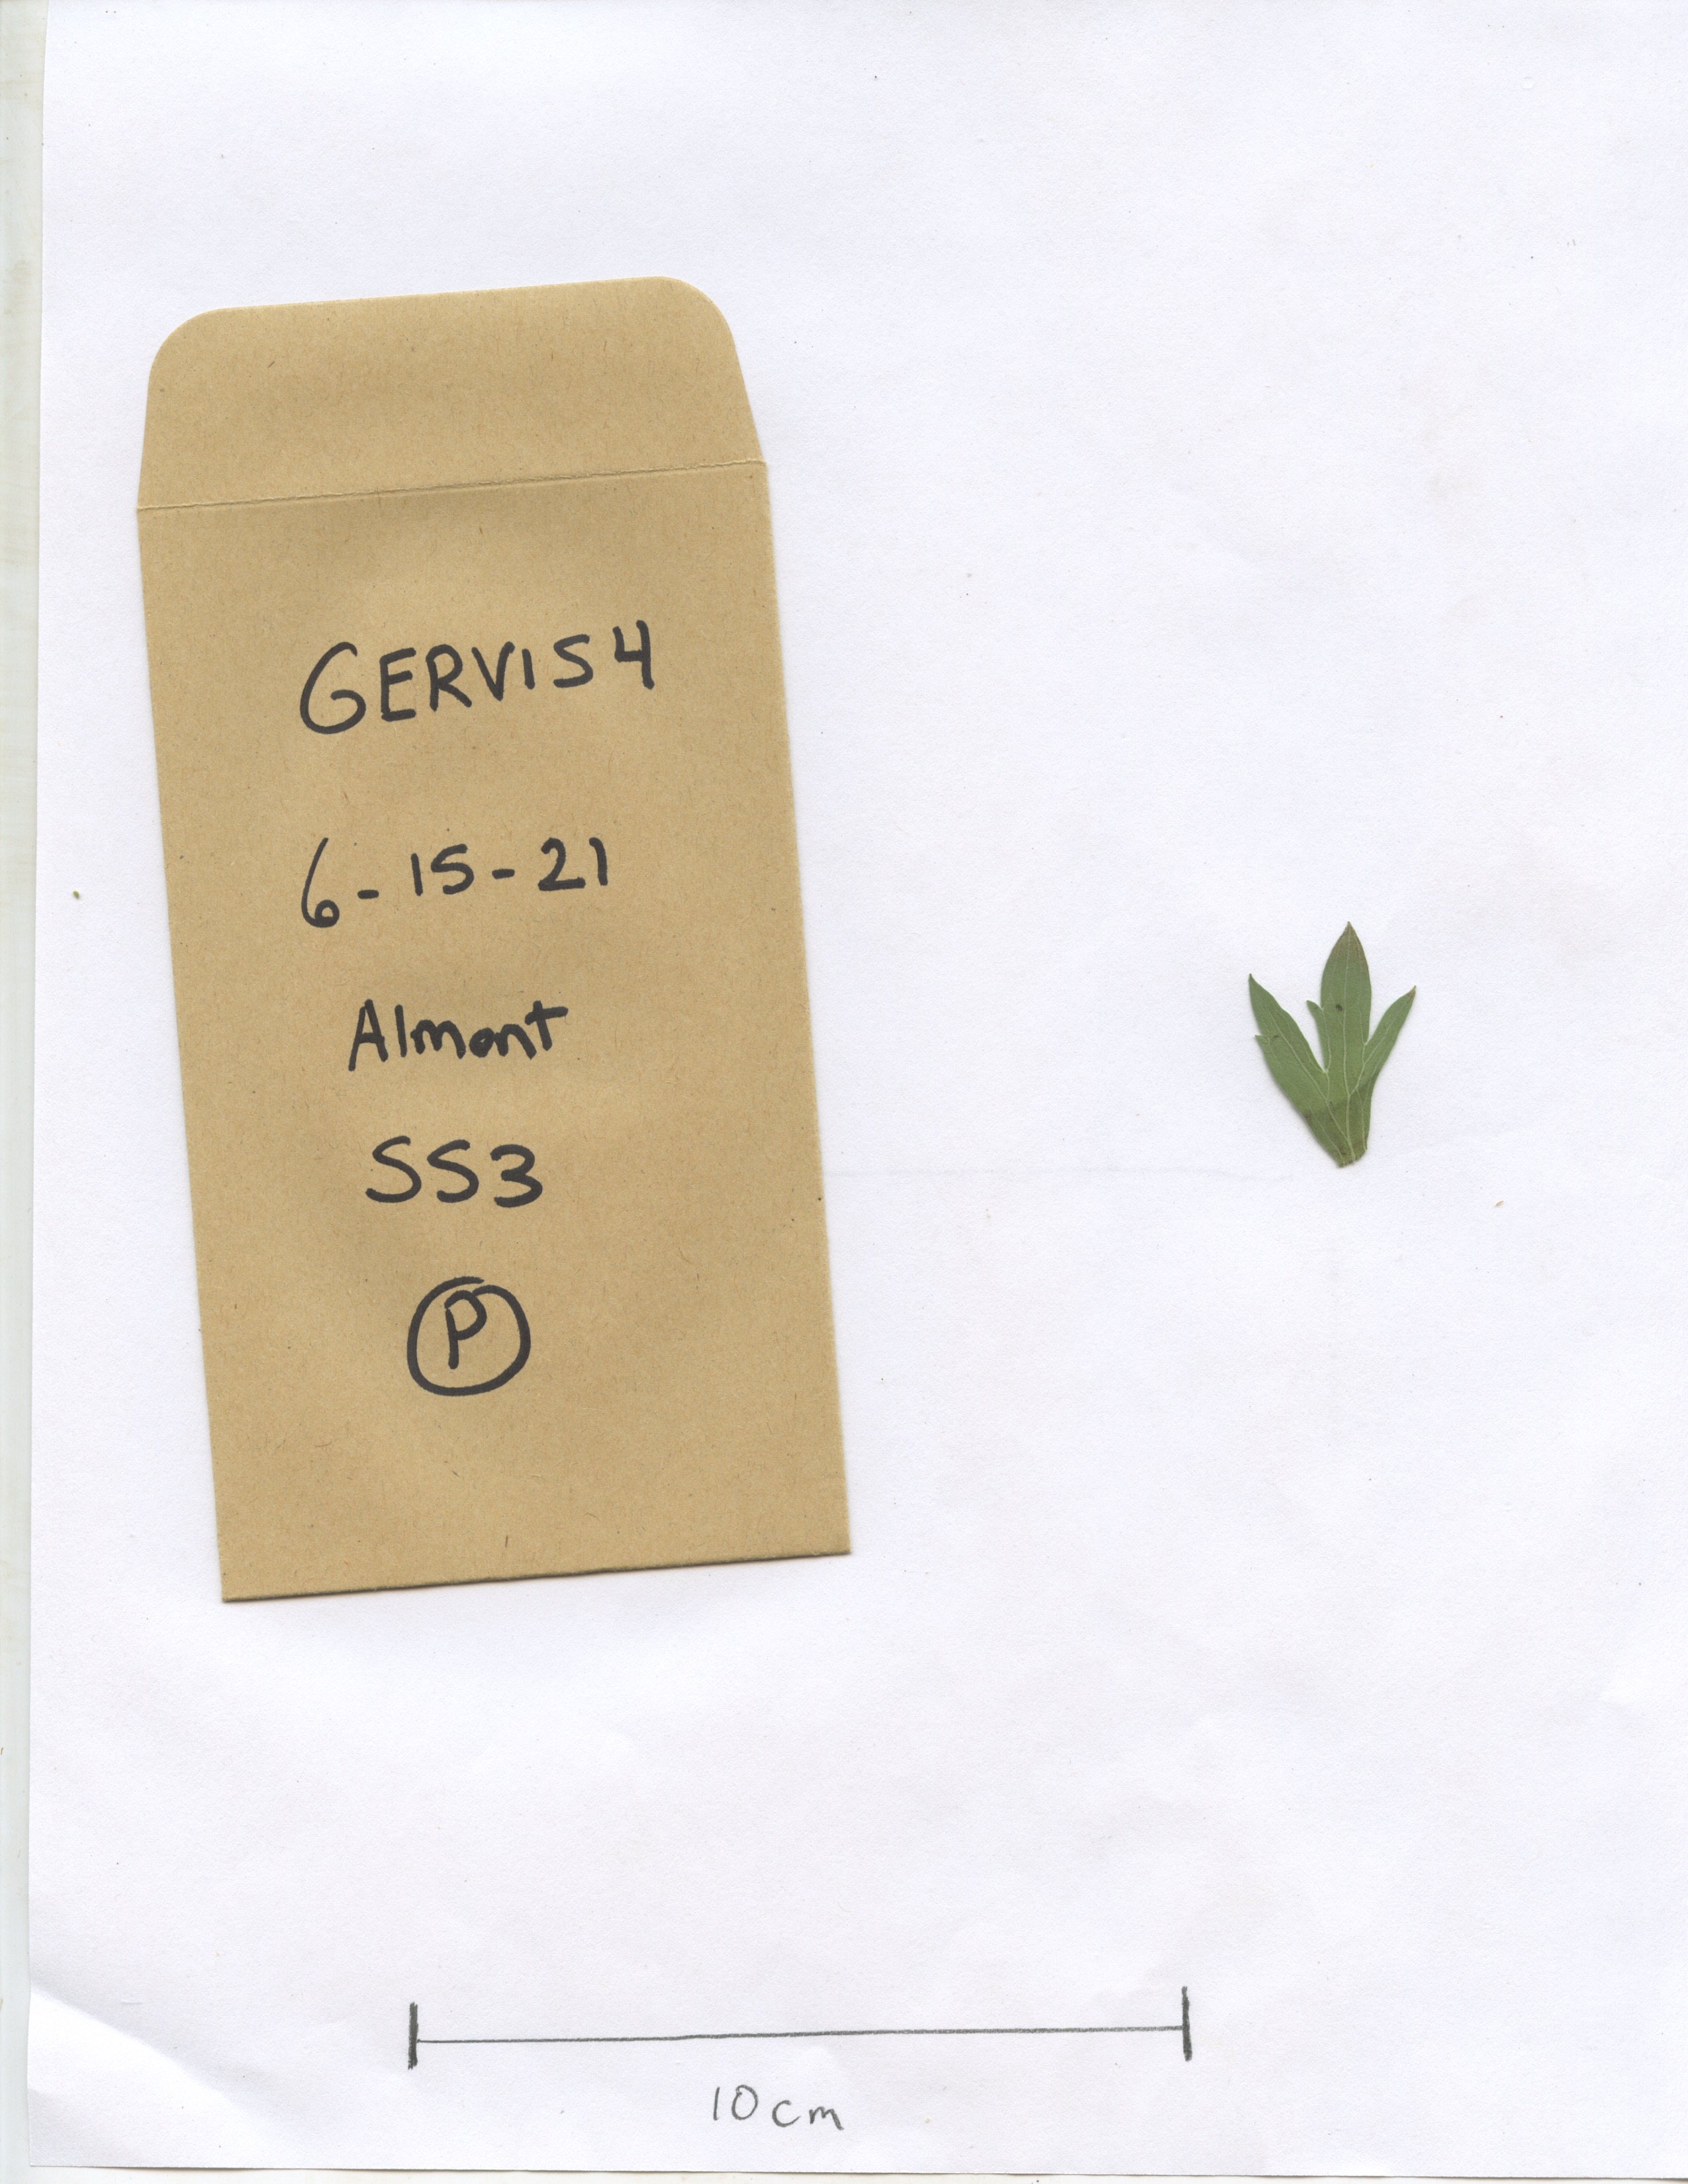 GERVIS4
6-15-21
Almont
SS3
P
10cm